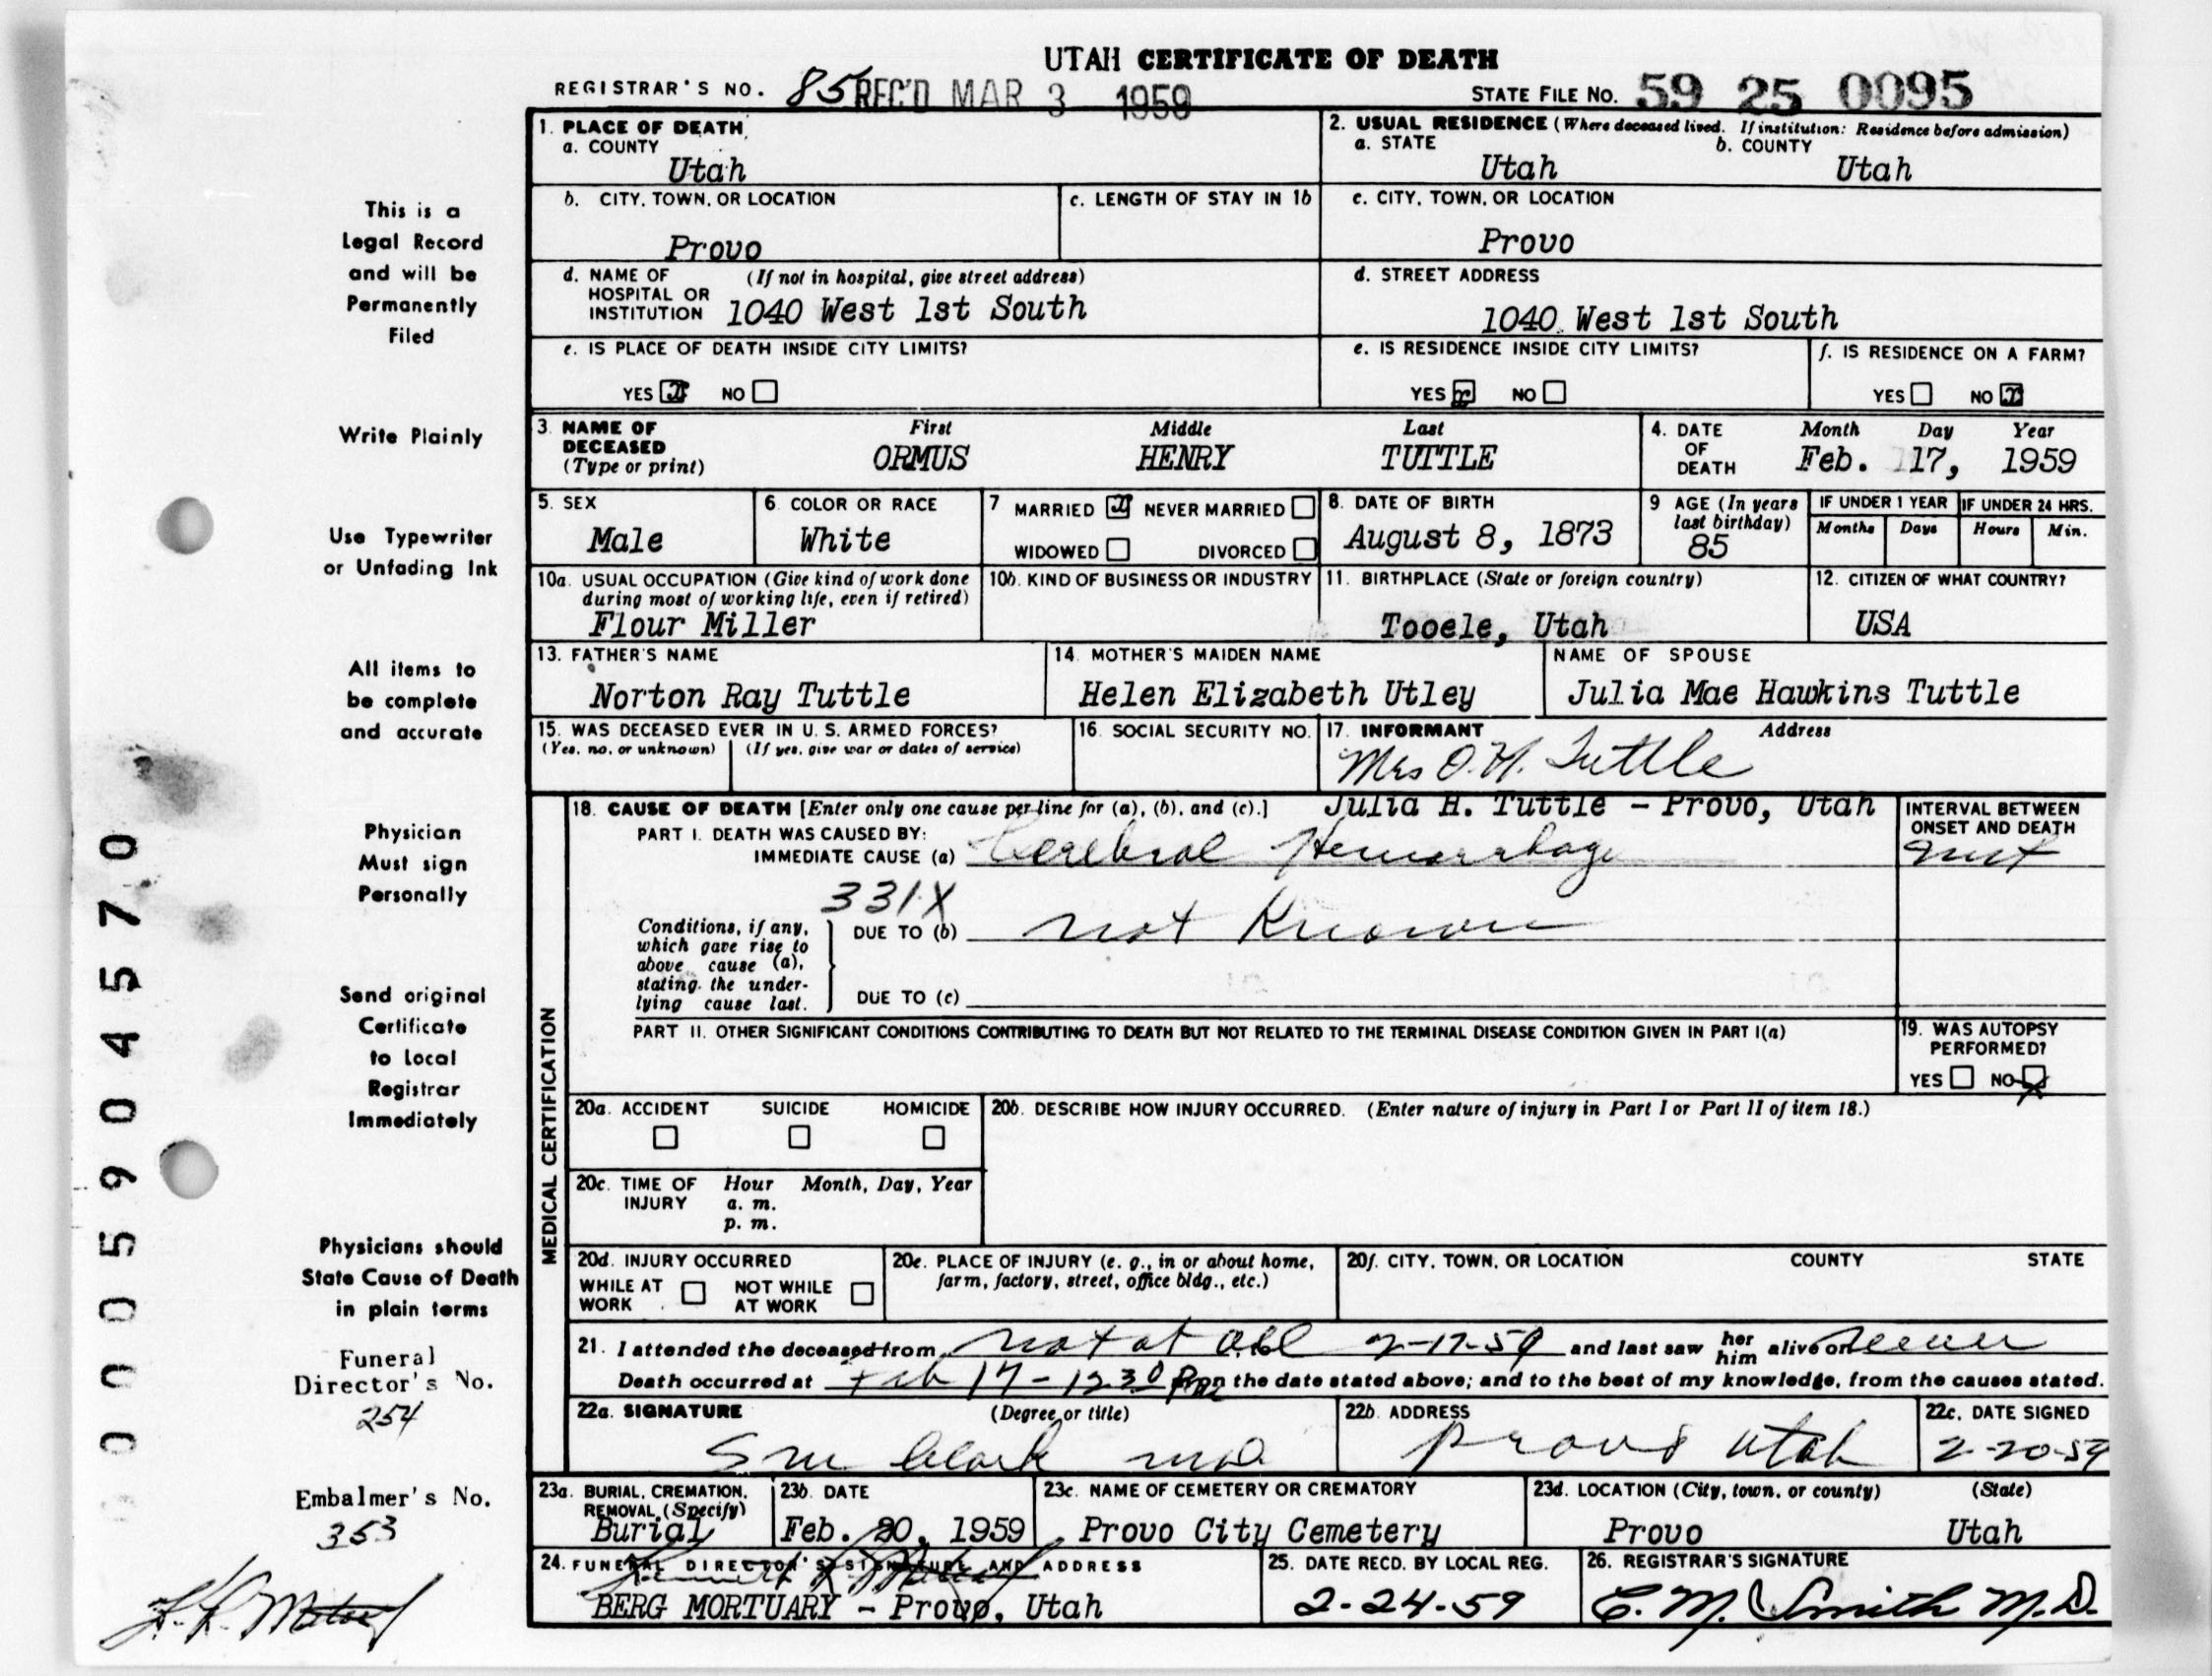 UTAH CERTIFICATE OF DEATH
REGISTRAR'S NO. 85 REC'D MAR 3 1959 STATE FILE NO. 59 25 0095
1. PLACE OF DEATH
a. COUNTY
Utah
2. USUAL RESIDENCE (Where deceased lived. If institution: Residence before admission)
a. STATE b. COUNTY
Utah Utah
b. CITY, TOWN, OR LOCATION
Provo
c. LENGTH OF STAY IN 1b
c. CITY, TOWN, OR LOCATION
Provo
d. NAME OF (If not in hospital, give street address)
HOSPITAL OR
INSTITUTION 1040 West 1st South
d. STREET ADDRESS
1040 West 1st South
e. IS PLACE OF DEATH INSIDE CITY LIMITS?
YES x NO
e. IS RESIDENCE INSIDE CITY LIMITS?
YES x NO
f. IS RESIDENCE ON A FARM?
YES NO x
3. NAME OF DECEASED (Type or print)
First Middle Last
ORMUS HENRY TUTTLE
4. DATE OF DEATH
Month Day Year
Feb. 17, 1959
5. SEX
Male
6. COLOR OR RACE
White
7 MARRIED x NEVER MARRIED
WIDOWED DIVORCED
8. DATE OF BIRTH
August 8, 1873
9 AGE (In years last birthday)
85
IF UNDER 1 YEAR IF UNDER 24 HRS.
Months Days Hours Min.
10a. USUAL OCCUPATION (Give kind of work done
during most of working life, even if retired)
Flour Miller
10b. KIND OF BUSINESS OR INDUSTRY
11. BIRTHPLACE (State or foreign country)
Tooele, Utah
12. CITIZEN OF WHAT COUNTRY?
USA
13. FATHER'S NAME
Norton Ray Tuttle
14. MOTHER'S MAIDEN NAME
Helen Elizabeth Utley
NAME OF SPOUSE
Julia Mae Hawkins Tuttle
15. WAS DECEASED EVER IN U. S. ARMED FORCES?
(Yes, no, or unknown) (If yes, give war or dates of service)
16. SOCIAL SECURITY NO.
17. INFORMANT Address
Mrs O.H. Tuttle
Julia H. Tuttle - Provo, Utah
MEDICAL CERTIFICATION
18. CAUSE OF DEATH [Enter only one cause per line for (a), (b), and (c).]
PART I. DEATH WAS CAUSED BY:
IMMEDIATE CAUSE (a) Cerebral Hemorrhage
INTERVAL BETWEEN
ONSET AND DEATH
331X
Conditions, if any,
which gave rise to
above cause (a),
stating the under-
lying cause last.
DUE TO (b) not Known
DUE TO (c)
PART II. OTHER SIGNIFICANT CONDITIONS CONTRIBUTING TO DEATH BUT NOT RELATED TO THE TERMINAL DISEASE CONDITION GIVEN IN PART I(a)
19. WAS AUTOPSY
PERFORMED?
YES NO X
20a. ACCIDENT SUICIDE HOMICIDE
20b. DESCRIBE HOW INJURY OCCURRED. (Enter nature of injury in Part I or Part II of item 18.)
20c. TIME OF INJURY Hour Month, Day, Year
a. m.
p. m.
20d. INJURY OCCURRED
WHILE AT WORK NOT WHILE AT WORK
20e. PLACE OF INJURY (e. g., in or about home,
farm, factory, street, office bldg., etc.)
20f. CITY, TOWN, OR LOCATION COUNTY STATE
21. I attended the deceased from not at all 2-17-59 and last saw her him alive on never
Death occurred at Feb 17 - 12 30 Pm on the date stated above; and to the best of my knowledge, from the causes stated.
22a. SIGNATURE (Degree or title)
Sm Clark MD
22b. ADDRESS
Provo Utah
22c. DATE SIGNED
2-20-59
23a. BURIAL, CREMATION,
REMOVAL (Specify)
Burial
23b. DATE
Feb. 20, 1959
23c. NAME OF CEMETERY OR CREMATORY
Provo City Cemetery
23d. LOCATION (City, town, or county) (State)
Provo Utah
24. FUNERAL DIRECTOR'S SIGNATURE AND ADDRESS
BERG MORTUARY - Provo, Utah
25. DATE RECD. BY LOCAL REG.
2-24-59
26. REGISTRAR'S SIGNATURE
C. M. Smith M.D.
This is a
Legal Record
and will be
Permanently
Filed
Write Plainly
Use Typewriter
or Unfading Ink
All items to
be complete
and accurate
Physician
Must sign
Personally
Send original
Certificate
to Local
Registrar
Immediately
Physicians should
State Cause of Death
in plain terms
Funeral
Director's No.
254
Embalmer's No.
353
000590 4570